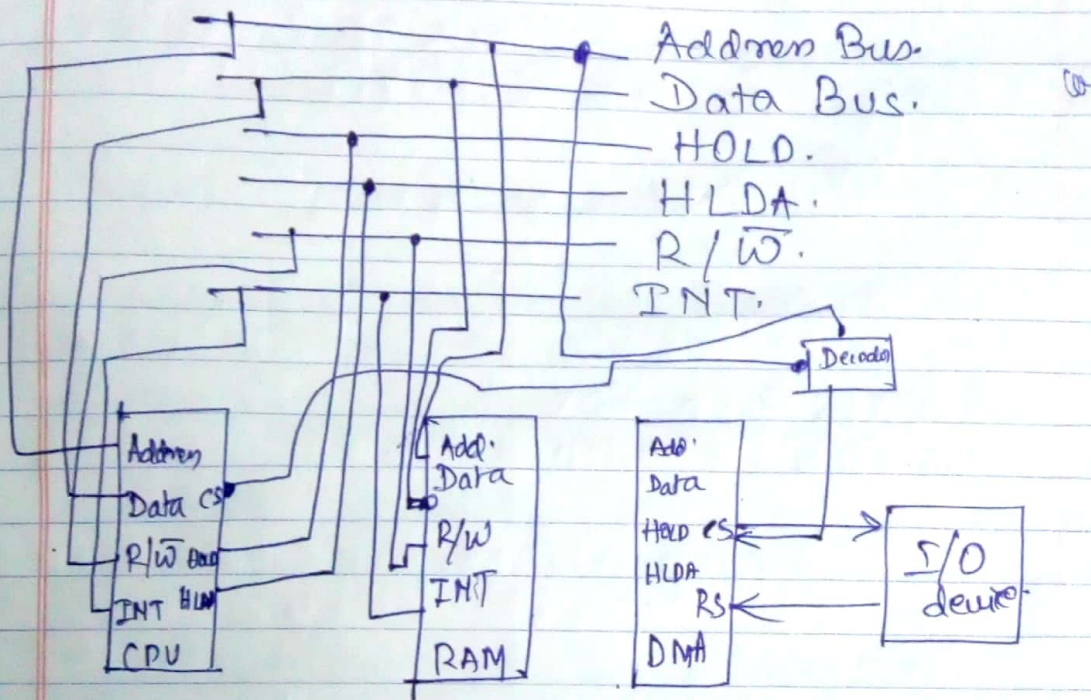 Address Bus.
Data Bus.
HOLD.
HLDA.
R/W̅.
INT.
Decoder
Address
Data CS
R/W̅ HOLD
INT HLDA
CPU
Add.
Data
R/W
INT
RAM
Add.
Data
HOLD CS
HLDA
RS
DMA
I/O
device.